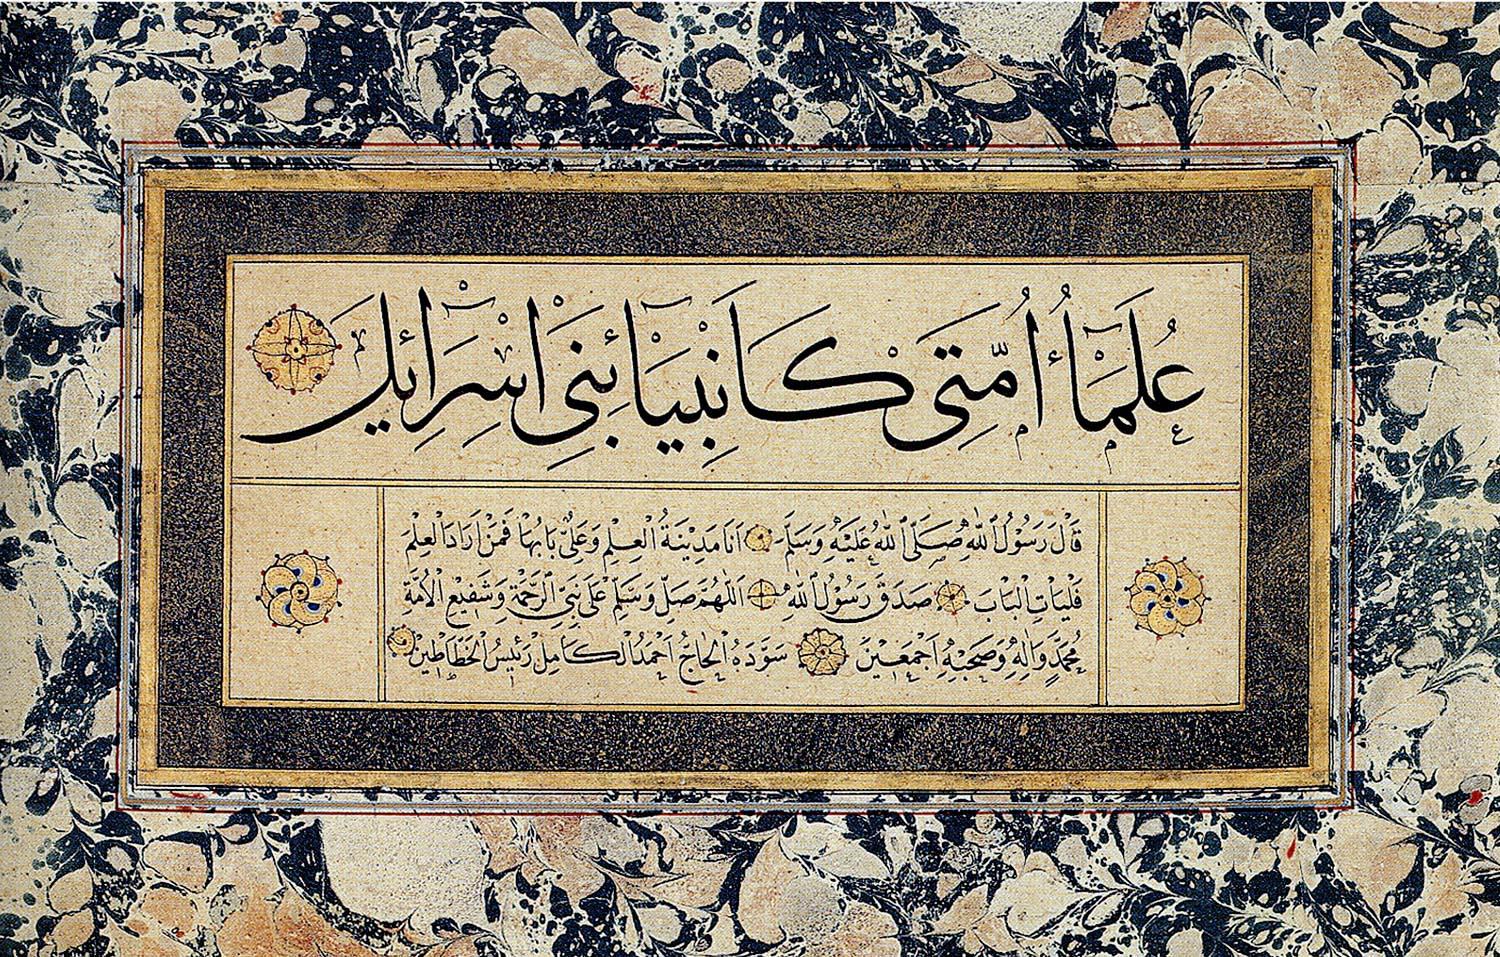 عُلَمَاۤءُ اُمَّتِى كَاَنْبِيَاۤئِ بَنِى اِسْرَاۤئِلَ
قَالَ رَسُولُ اللهِ صَلَّى اللهُ عَلَيْهِ وَسَلَّمَ اَنَا مَدِينَةُ الْعِلْمِ وَعَلِىٌّ بَابُهَا فَمَنْ اَرَادَ الْعِلْمَ
فَلْيَاتِ الْبَابَ صَدَقَ رَسُولُ اللهِ اَللّٰهُمَّ صَلِّ وَسَلِّمْ عَلَى نَبِىِّ الرَّحْمَةِ وَشَفِيعِ الْاُمَّةِ
مُحَمَّدٍ وَاٰلِهِ وَصَحْبِهِ اَجْمَعِينَ سَوَّدَهُ الْحَاجُّ اَحْمَدُ الْكَامِلُ رَئِيسُ الْخَطَّاطِينَ